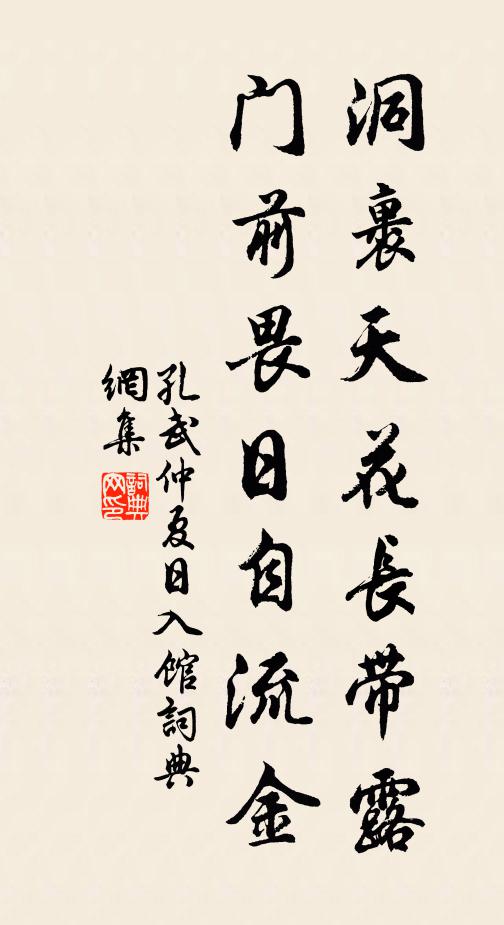 洞裹天花長帶露
门前畏日自流金
孔武仲夏日入館詞典
網集
詞典
网印